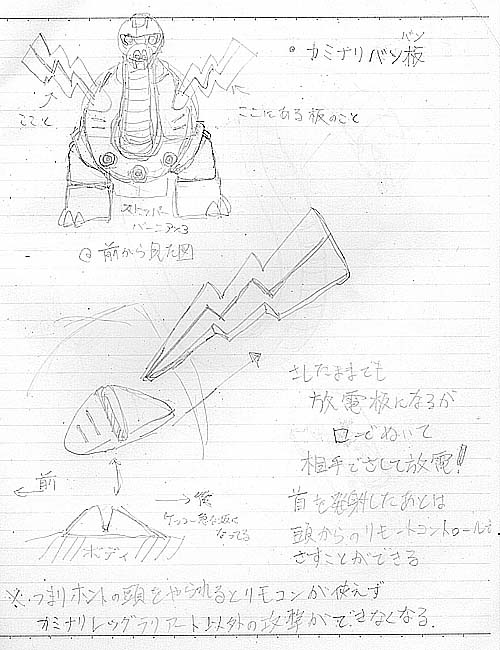 バン
• カミナリバン板
ここと
ここにある板のこと
ストッパー
バーニア×3
@ 前から見た図
さしたままでも
放電板になるが
口でぬいて
相手でさして放電!!
前
後
ケッコー急な坂に
なってる
ボディ
首を発射したあとは
頭からのリモートコントロールで
さすことができる
※つまりホントの頭をやられるとリモコンが使えず
カミナリレッグラリアート以外の攻撃ができなくなる.